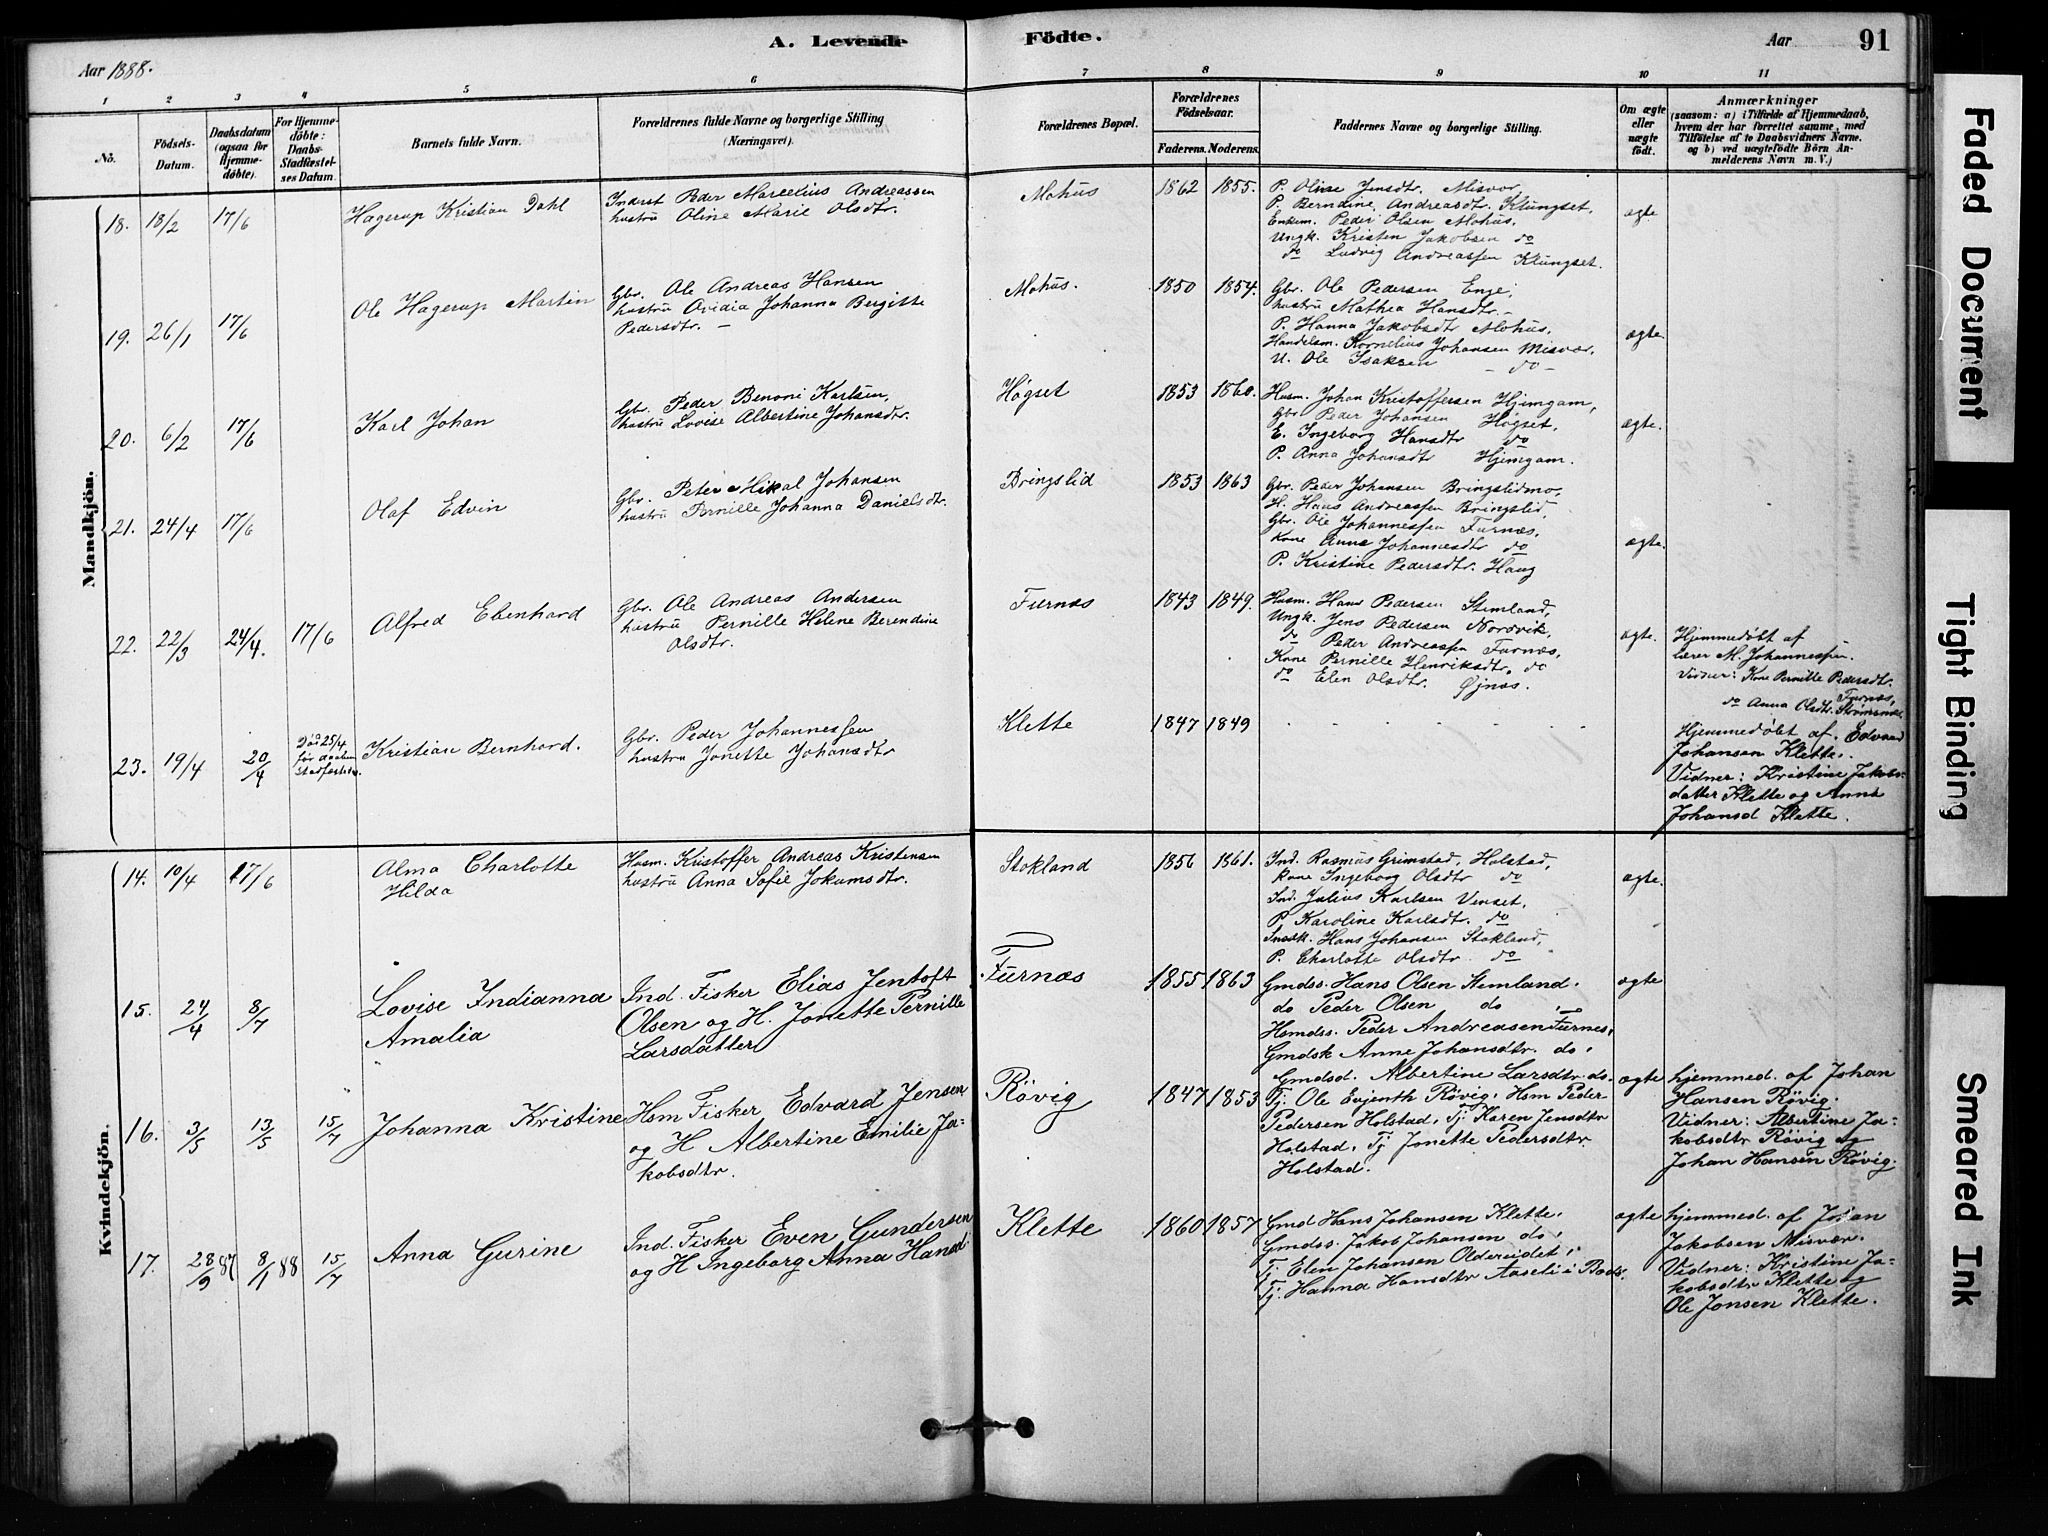 A. Levende Födte.
Aar 1888.
Aar 91
1 2 3 4 5 6 7 8 9 10 11
No.
Födsels-Datum.
Daabsdatum (ogsaa for Hjemmedöbte).
For Hjemmedöbte: Daabs-Stadfæstelses Datum.
Barnets fulde Navn.
Forældrenes fulde Navne og borgerlige Stilling (Næringsvei).
Forældrenes Bopæl.
Forældrenes Födselsaar.
Faderens. Moderens.
Faddernes Navne og borgerlige Stilling.
Om ægte eller uægte födt.
Anmærkninger
(saasom: a) i Tilfælde af Hjemmedaab, hvem der har forrettet samme, med Tilföielse af to Daabsvidners Navne. og b) ved uægtefödte Börn Anmelderens Navn m. V.)
Mandkjön.
18. 18/2 17/6 Hagerup Kristian Dahl
Inderst Peder Marcelius Andreassen
hustru Oline Marie Olsdtr.
Mohus 1862 1855.
P. Oline Jensdtr. Misvær,
P. Berndine Andreasdtr. Klungset,
Enkem. Peder Olsen Mohus,
Ungk. Kristen Jakobsen do
do Ludvig Andreassen Klungset.
ægte
19. 26/1 17/6 Ole Hagerup Martin
Gbr. Ole Andreas Hansen
hustru Ovidia Johanna Bergitte
Pedersdtr. —
Mohus. 1850 1854.
Gbr. Ole Pedersen Enge,
hustru Mathea Hansdtr. –
P. Hanna Jakobsdtr Mohus,
Handelsm. Kornelius Johansen Misvær,
U. Ole Isaksen – do –
ægte
20. 6/2 17/6 Karl Johan
Gbr. Peder Benoni Karlsen,
hustru Lovise Albertine Johansdtr.
Høgset 1853 1860.
Husm. Johan Kristoffersen Hjemgam,
Gbr Peder Johansen Høgset,
E. Ingeborg Hansdtr do
P. Anna Johansdtr Hjemgam.
ægte.
21. 24/4 17/6 Olaf Edvin
Gbr. Peter Mikal Johansen
hustru Pernille Johanna Danielsdtr.
Bringslid 1853 1863
Gbr. Peder Johansen Bringslidmo,
H. Hans Andreassen Bringslid,
Gbr. Ole Johannessen Furnæs,
Kone Anne Johannesdtr do
P. Kristine Pedersdtr. Haug
ægte.
22. 22/3 24/4. 17/6 Alfred Ebenhard
Gbr. Ole Andreas Andersen
hustru Pernille Helene Berendine
Olsdtr.
Furnæs 1843 1849.
Husm. Hans Pedersen Stemland,
Ungk. Jens Pedersen Nordvik,
do Peder Andreassen Furnæs,
Kone Pernille Henriksdtr. do
do Elen Olsdtr. Øjnæs.
ægte.
Hjemmedøbt af
lærer M. Johannessen.
Vidner: Kone Pernille Pedersdtr.
Furnæs,
do Anna Olsdtr. Strømsnæs.
23. 19/4 20/4
Død 25/4
før daaben
stadfæstet.
Kristian Bernhard.
Gbr. Peder Johannessen
hustru Jonette Johansdtr
Klette 1847 1849
Hjemmedøbt af. Edvard
Johansen Klette.
Vidner: Kristine Jakobs-
datter Klette og Anna
Johansd Klette.
Kvindekjön.
14. 10/4 17/6 Alma Charlotte
Hilda
Husm. Kristoffer Andreas Kristensen
hustru Anna Sofie Jokumsdtr.
Stokland 1856 1861.
Ind. Rasmus Grimstad, Holstad,
kone Ingeborg Olsdtr do
Ind. Julius Karlsen Venset,
P. Karoline Karlsdtr. do
Hans Johansen Stokland,
P. Charlotte Olsdtr. do
ægte.
15. 24/4 8/7 Lovise Indianna
Amalia
Ind. Fisker Elias Jentoft
Olsen og H. Jonette Pernille
Larsdatter
Furnæs 1855 1863
Gmdss. Hans Olsen Stemland.
do Peder Olsen do
Hsmdss. Peder Andreasen Furnes,
Gmdsk Anne Johansdtr. do.
Gmdsd. Albertine Larsdtr. do.
ægte
16. 3/5 13/5 15/7 Johanna Kristine
Hsm Fisker Edvard Jensen
og H Albertine Emilie Ja-
kobsdtr.
Rövig 1847 1853
Tj. Ole Evjenth Rövig. Hsm Peder
Pedersen Holstad, Tj Karen Jensdtr
Holstad, Tj Jonette Pedersdtr
Holstad.
ægte
hjemmed. af Johan
Hansen Rövig.
Vidner: Albertine Ja-
kobsdtr Rövig og
Johan Hansen Rövig.
17. 28/9 87 8/1 88 15/7 Anna Gurine
Ind. Fisker Even Gundersen
og H Ingeborg Anna Hansd.
Klette 1860 1857
Gmd Hans Johansen Klette.
Gmdss. Jakob Johansen do.
Tj. Elen Johansen Oldereidet,
Tj. Hanna Hansdtr Aaseli i Bodö.
ægte
hjemmed. af Johan
Jakobsen Misvær.
Vidner: Kristine Ja-
kobsdtr Klette og
Ole Jensen Klette.
Faded Document
Tight Binding
Smeared Ink